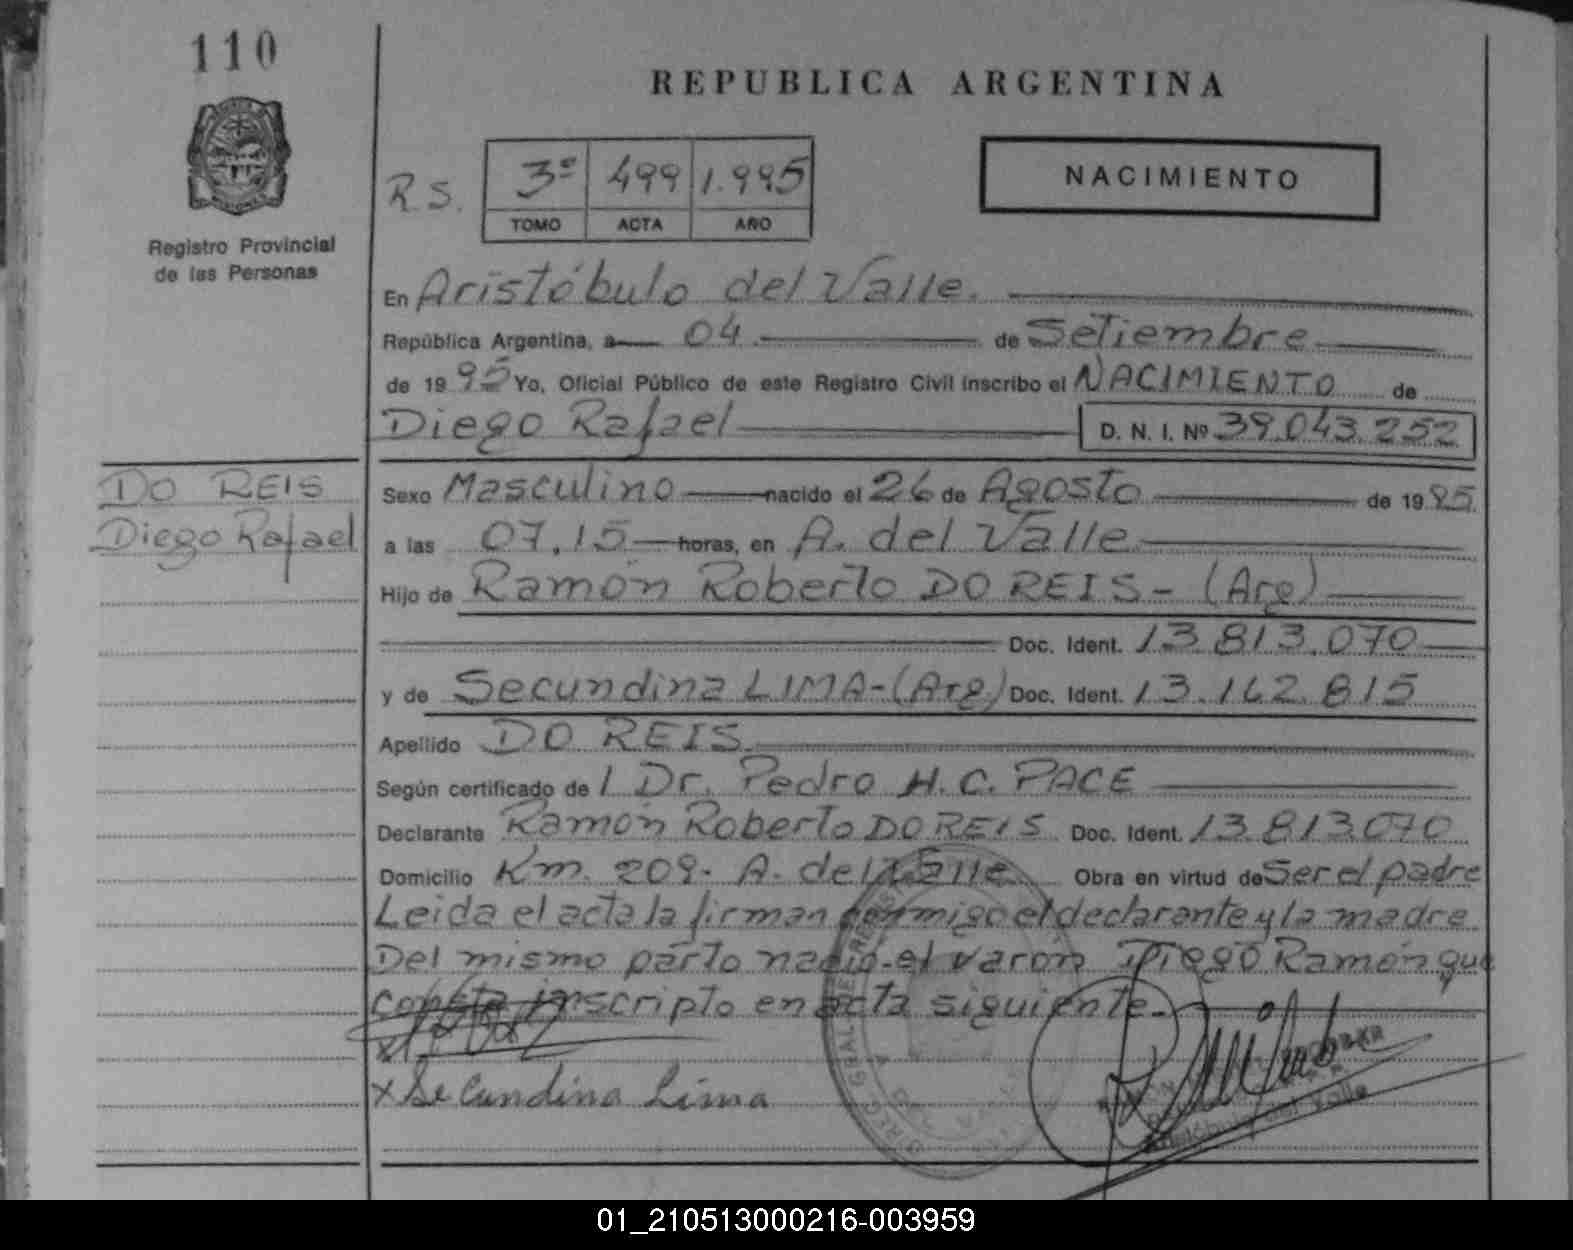 110
REPUBLICA ARGENTINA
Registro Provincial
de las Personas
R.S. 3º 499 1.995
TOMO ACTA AÑO
NACIMIENTO
En Aristóbulo del Valle.
República Argentina, a 04 de Setiembre
de 1995 Yo, Oficial Público de este Registro Civil inscribo el NACIMIENTO de
Diego Rafael D. N. I. Nº 39.043.252
DO REIS
Diego Rafael
Sexo Masculino nacido el 26 de Agosto de 1995.
a las 07,15 horas, en A. del Valle
Hijo de Ramón Roberto DO REIS - (Arg)
Doc. Ident. 13.813.070
y de Secundina LIMA - (Arg) Doc. Ident. 13.162.815
Apellido DO REIS
Según certificado de l Dr. Pedro H. C. PACE
Declarante Ramón Roberto DO REIS Doc. Ident. 13.813.070
Domicilio Km. 209. A. del Valle Obra en virtud de Ser el padre
Leida el acta la firman conmigo el declarante y la madre
Del mismo parto nació el varon Diego Ramón que
consta inscripto en acta siguiente.-
x Secundina Lima
Aristóbulo del Valle
01_210513000216-003959